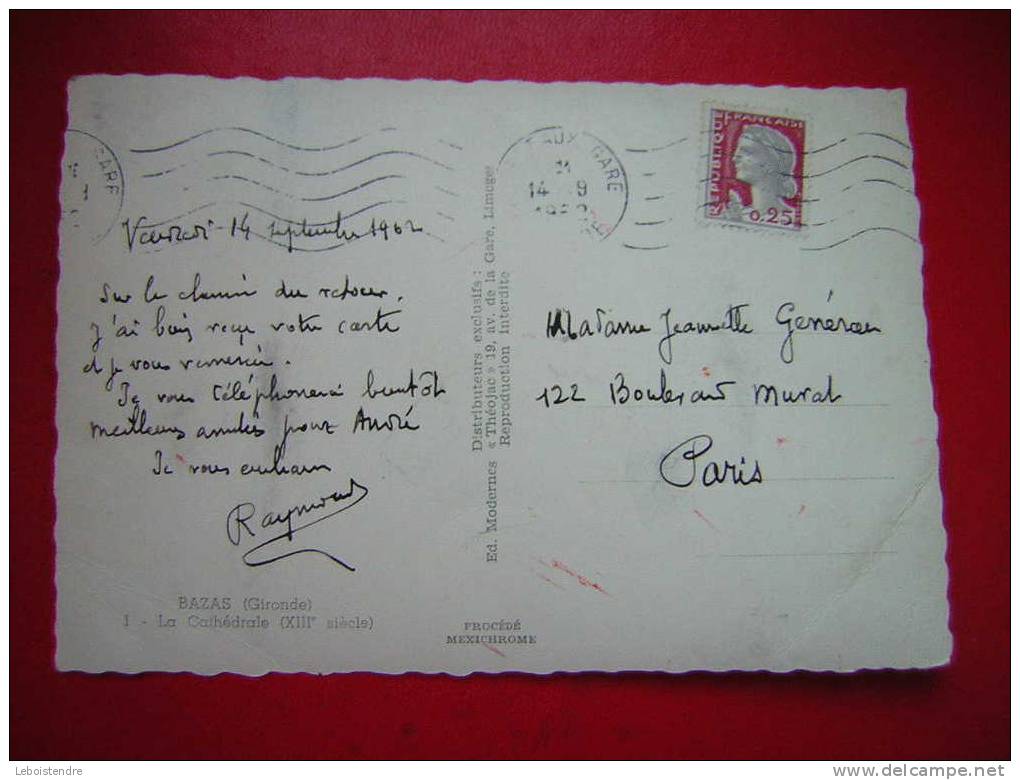 Vendredi 14 septembre 1962
Sur le chemin du retour,
j'ai bien reçu votre carte
et je vous remercie.
Je vous téléphonerai bientôt
meilleures amitiés pour André
Je vous embrasse
Raymond
BAZAS (Gironde)
1 - La Cathédrale (XIIIe siècle)
Ed. Modernes « Théojac » 19, av. de la Gare, Limoges
Distributeurs exclusifs :
Reproduction interdite
PROCÉDÉ
MEXICHROME
GARE
AUX GARE
14 - 9
REPUBLIQUE FRANCAISE
0,25
Madame Jeannette Généreau
122 Boulevard Murat
Paris
Leboistendre